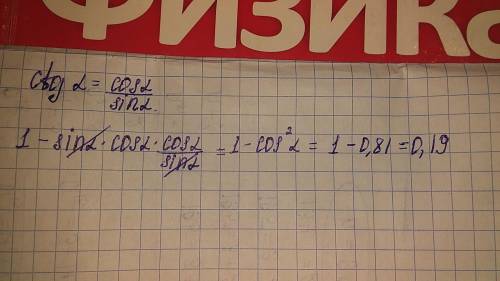 ФИЗИКА
ctg α = cosα / sinα
1 - sinα · cosα · cosα / sinα = 1 - cos²α = 1 - 0,81 = 0,19